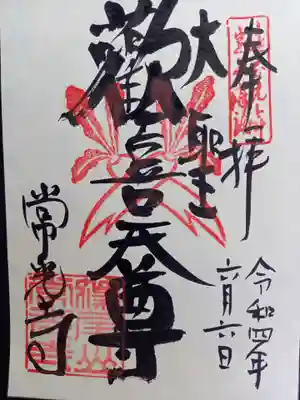 奉拝
令和四年
六月六日
大聖
歓喜天尊
常光寺